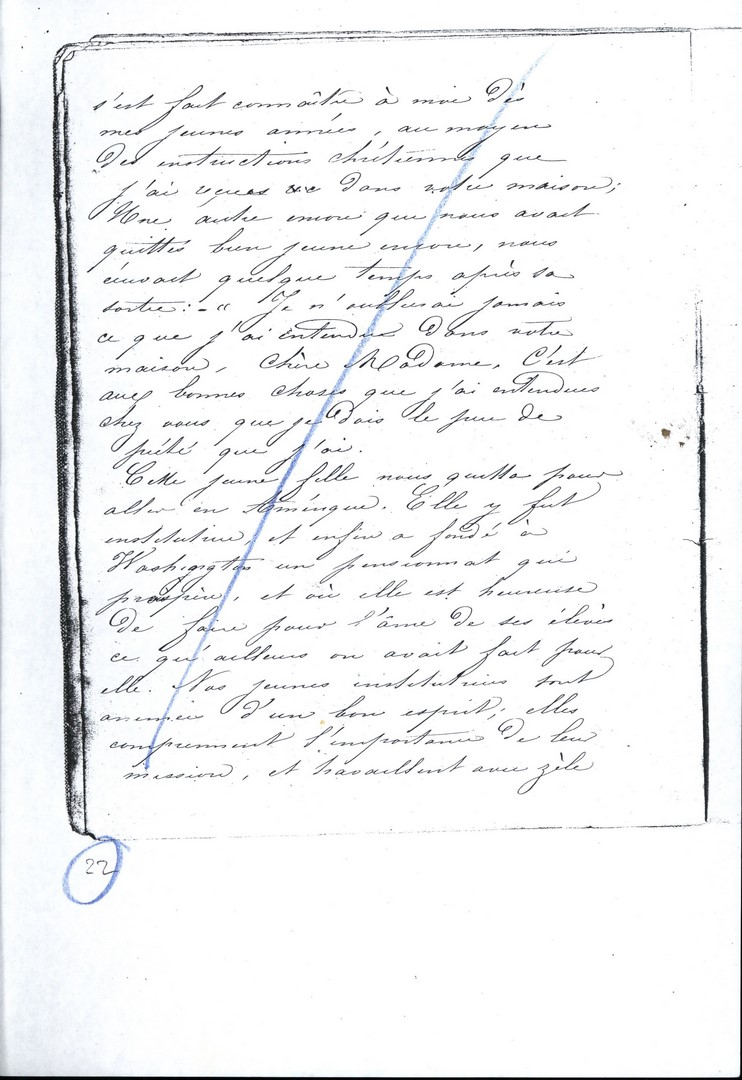 s'est fait connaître à moi dès
mes jeunes années, au moyen
des instructions chrétiennes que
j'ai reçues dans votre maison;
Une autre encore que nous avait
quittés bien jeune encore, nous
écrivait quelque temps après sa
sortie: - " Je n'oublierai jamais
ce que j'ai entendu dans votre
maison, chère Madame. C'est
aux bonnes choses que j'ai entendues
chez vous que je dois le peu de
piété que j'ai.
Cette jeune fille nous quitta pour
aller en Amérique. Elle y fut
institutrice, et enfin a fondé à
Washington un pensionnat qui
prospère, et où elle est heureuse
de faire pour l'âme de ses élèves
ce qu'ailleurs on avait fait pour
elle. Nos jeunes institutrices sont
animées d'un bon esprit; elles
comprennent l'importance de leur
mission, et travaillent avec zèle
22